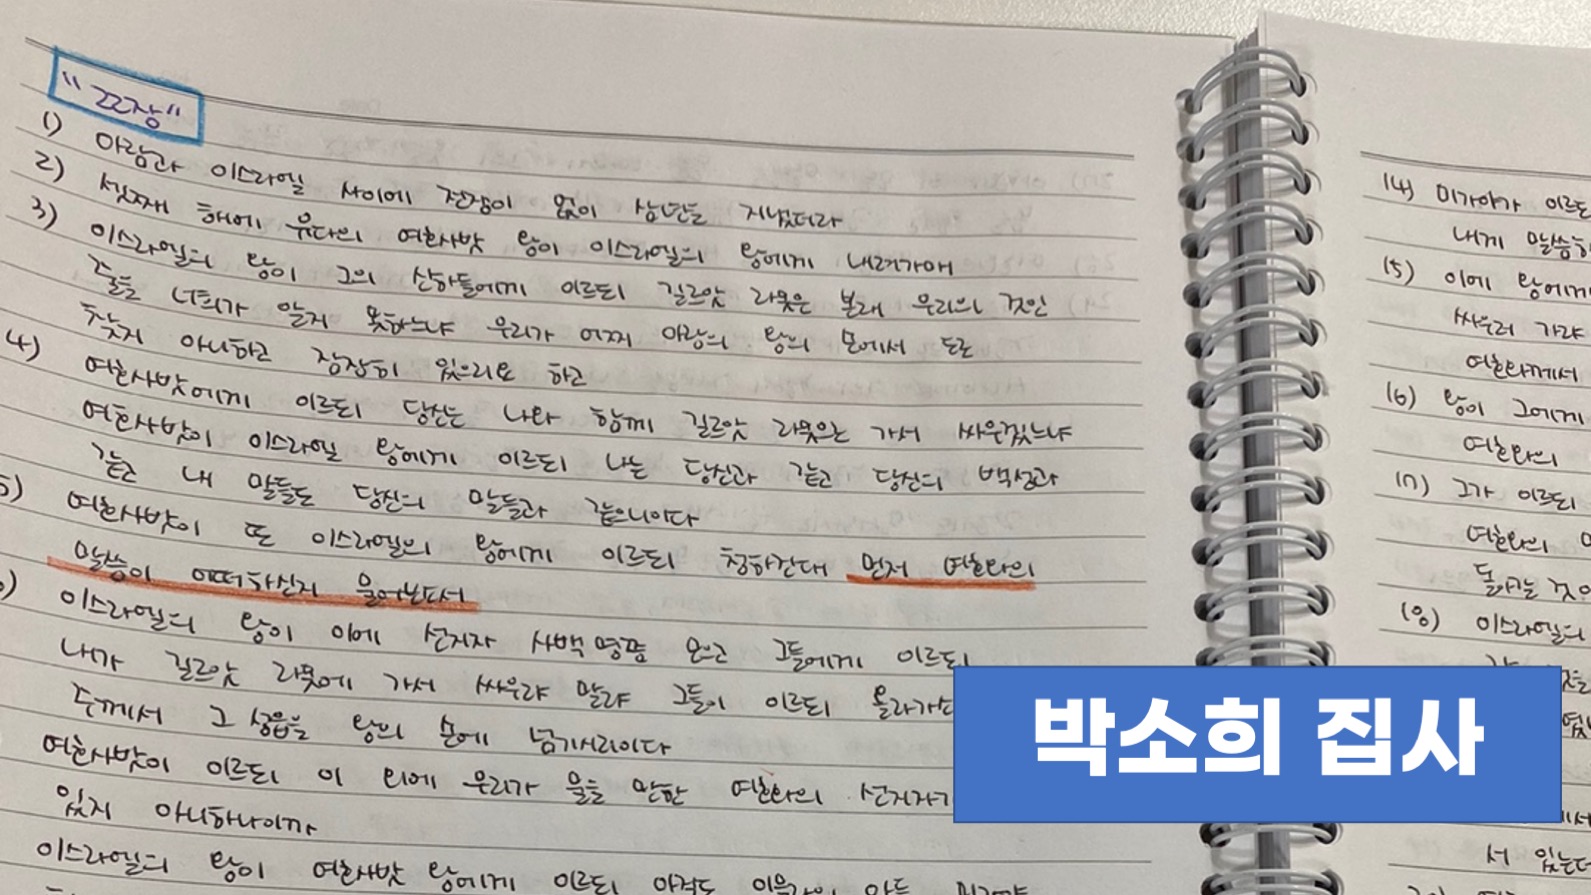 "22장"
1) 아람과 이스라엘 사이에 전쟁이 없이 삼년을 지냈더라
2) 셋째 해에 유다의 여호사밧 왕이 이스라엘의 왕에게 내려가매
3) 이스라엘의 왕이 그의 신하들에게 이르되 길르앗 라못은 본래 우리의 것인
줄을 너희가 알지 못하느냐 우리가 어찌 아람의 왕의 손에서 도로
찾지 아니하고 잠잠히 있으리요 하고
4) 여호사밧에게 이르되 당신은 나와 함께 길르앗 라못으로 가서 싸우겠느냐
여호사밧이 이스라엘 왕에게 이르되 나는 당신과 같고 당신의 백성과
같고 내 말들도 당신의 말들과 같으니이다
5) 여호사밧이 또 이스라엘의 왕에게 이르되 청하건대 먼저 여호와의
말씀이 어떠하신지 물어보소서
이스라엘의 왕이 이에 선지자 사백명쯤 모으고 그들에게 이르되
내가 길르앗 라못에 가서 싸우랴 말랴 그들이 이르되 올라가소
주께서 그 성읍을 왕의 손에 넘기시리이다
여호사밧이 이르되 이 외에 우리가 물을 만한 여호와의 선지자가
있지 아니하니이까
이스라엘의 왕이 여호사밧 왕에게 이르되 아직도
14) 미가야가 이르되
내게 말씀하
15) 이에 왕에게
싸우러 가랴
여호와께서
16) 왕이 그에게
여호와의
17) 그가 이르되
여호와의
돌아가는 것이
18) 이스라엘의
서 있는데
박소희 집사